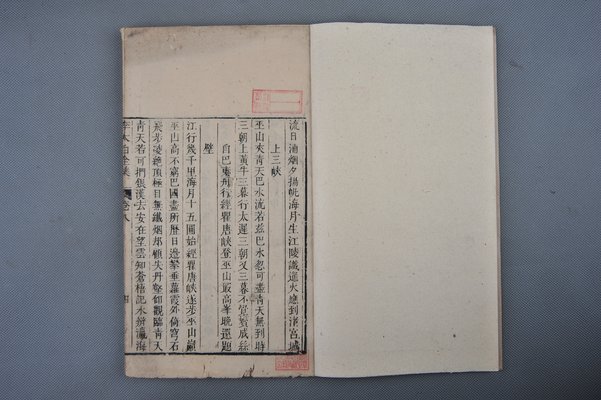 流目浦烟夕揚帆海月生江陵識遙火應到渚宮城
上三峽
巫山夾青天巴水流若茲巴水忽可盡青天無到時
三朝上黃牛三暮行太遲三朝又三暮不覺鬢成絲
自巴東舟行經瞿唐峽登巫山最高峯晚還題
壁
江行幾千里海月十五圓始經瞿唐峽遂步巫山巔
巫山高不窮巴國盡所歷日邊攀垂蘿霞外倚穹石
飛步凌絕頂極目無纖烟却顧失丹壑仰觀臨青天
青天若可捫銀漢去安在望雲知蒼梧記水辨瀛海
李太白全集